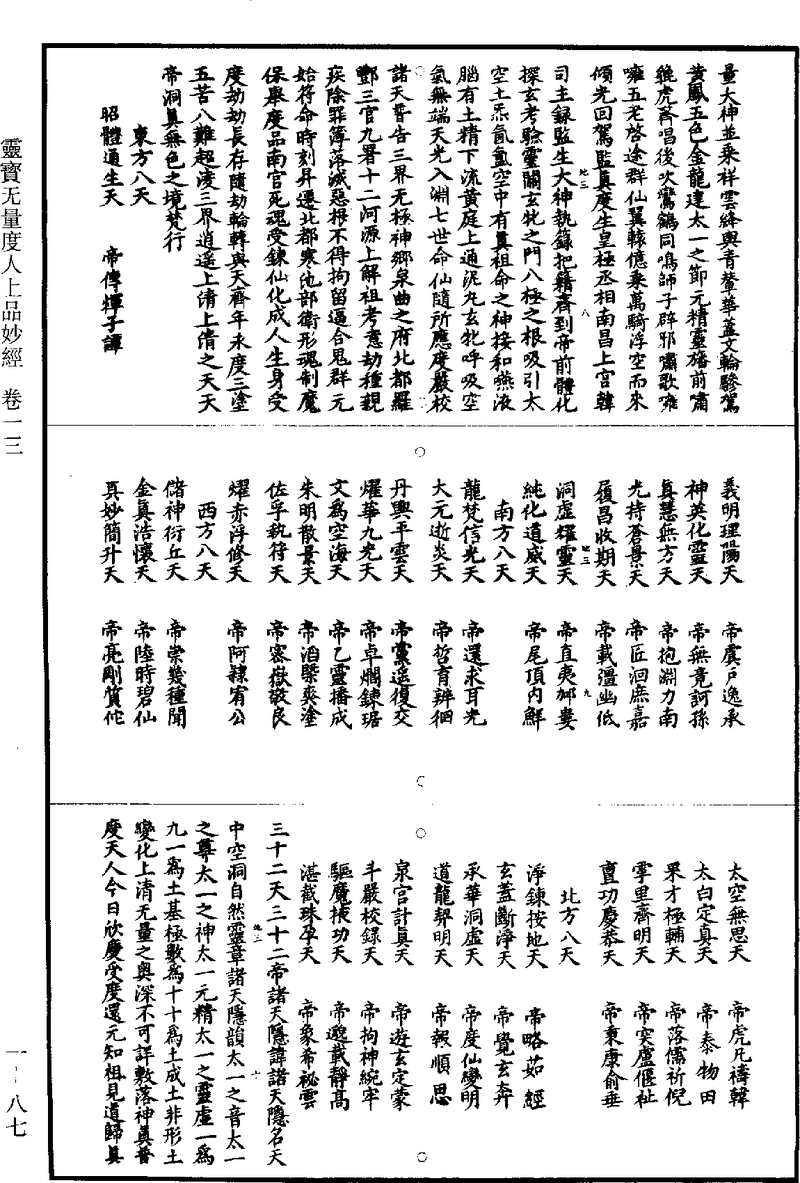 量大神並乘祥雲絳輿青華蓋文輪驂駕
黃鳳五色金龍建太一之節元精靈旛前嘯
雛虎齊唱後吹鸞鶴同鳴師子辟邪嘯歌雍
雍五老啓途群仙翼轅億乘萬騎浮空而來
傾光回駕監真度生皇極丞相南昌上宮韓
地三
八
司主錄監生大神執籙把籍齊到帝前體化
探玄考驗靈關玄牝之門八極之根吸引太
空土炁氤氳空中有真祖命之神接和嚥液
腦有土精下流黃庭上通泥丸玄牝呼吸空
氣無端天光入淵七世命仙隨所應度嚴校
諸天普告三界无極神鄉泉曲之府北都羅
酆三官九署十二河源上解祖考意劫種親
疾除罪簿落滅惡根不得拘留逼合鬼群元
始符命時刻昇遷北都寒池部衛形魂制魔
保舉度品南宮死魂受鍊仙化成人生身受
度劫劫長存隨劫輪轉與天齊年永度三塗
五苦八難超凌三界逍遙上清上清之天天
帝洞真無色之境梵行
東方八天
昭體通生天　帝傳輝子譚
義明理陽天　帝虞戶逸承
神英化靈天　帝無竟訶孫
真慧無方天　帝抱淵力南
光持蒼景天　帝匠洄庶嘉
履昌收期天　帝載彊幽低
地三
九
洞虛燿靈天　帝直夷邺婁
純化道威天　帝尾頂內鮮
南方八天
龍梵信光天　帝還永耳光
大元逝炎天　帝哲育辨徊
丹輿平雲天　帝黨遥復交
燿華九光天　帝卓爓鍊琚
文為空海天　帝乙靈播成
朱明散景天　帝滔槩爽塗
佐孚執符天　帝密嶽敬良
燿赤浮修天　帝阿隸宥公
西方八天
儲神衍丘天　帝崇幾種聞
金真浩懷天　帝陸時碧仙
真妙簡升天　帝亮剛質佗
太空無思天　帝虎凡禱韓
太白定真天　帝泰物田
果才極輔天　帝落儒祈倪
掌里齊明天　帝突盧偃祉
亶功慶恭天　帝秉康俞垂
北方八天
淨鍊按地天　帝略茹經
玄蓋斷淨天　帝覺玄奔
承華洞虛天　帝度仙變明
道龍契明天　帝報順思
泉宮計真天　帝遊玄定蒙
斗嚴校錄天　帝拘神綩牢
驅魔掖功天　帝邈載靜高
湛截珠孕天　帝象希祕雲
三十二天三十二帝諸天隱諱諸天隱名天
地三
十
中空洞自然靈章諸天隱韻太一之音太一
之尊太一之神太一元精太一之靈虛一為
九一為土基極數為十十為土成土非形土
變化上清无量之奧深不可詳敷落神真普
度天人今日欣慶受度還元知祖見道歸真
靈寶无量度人上品妙經　卷一三
一—八七